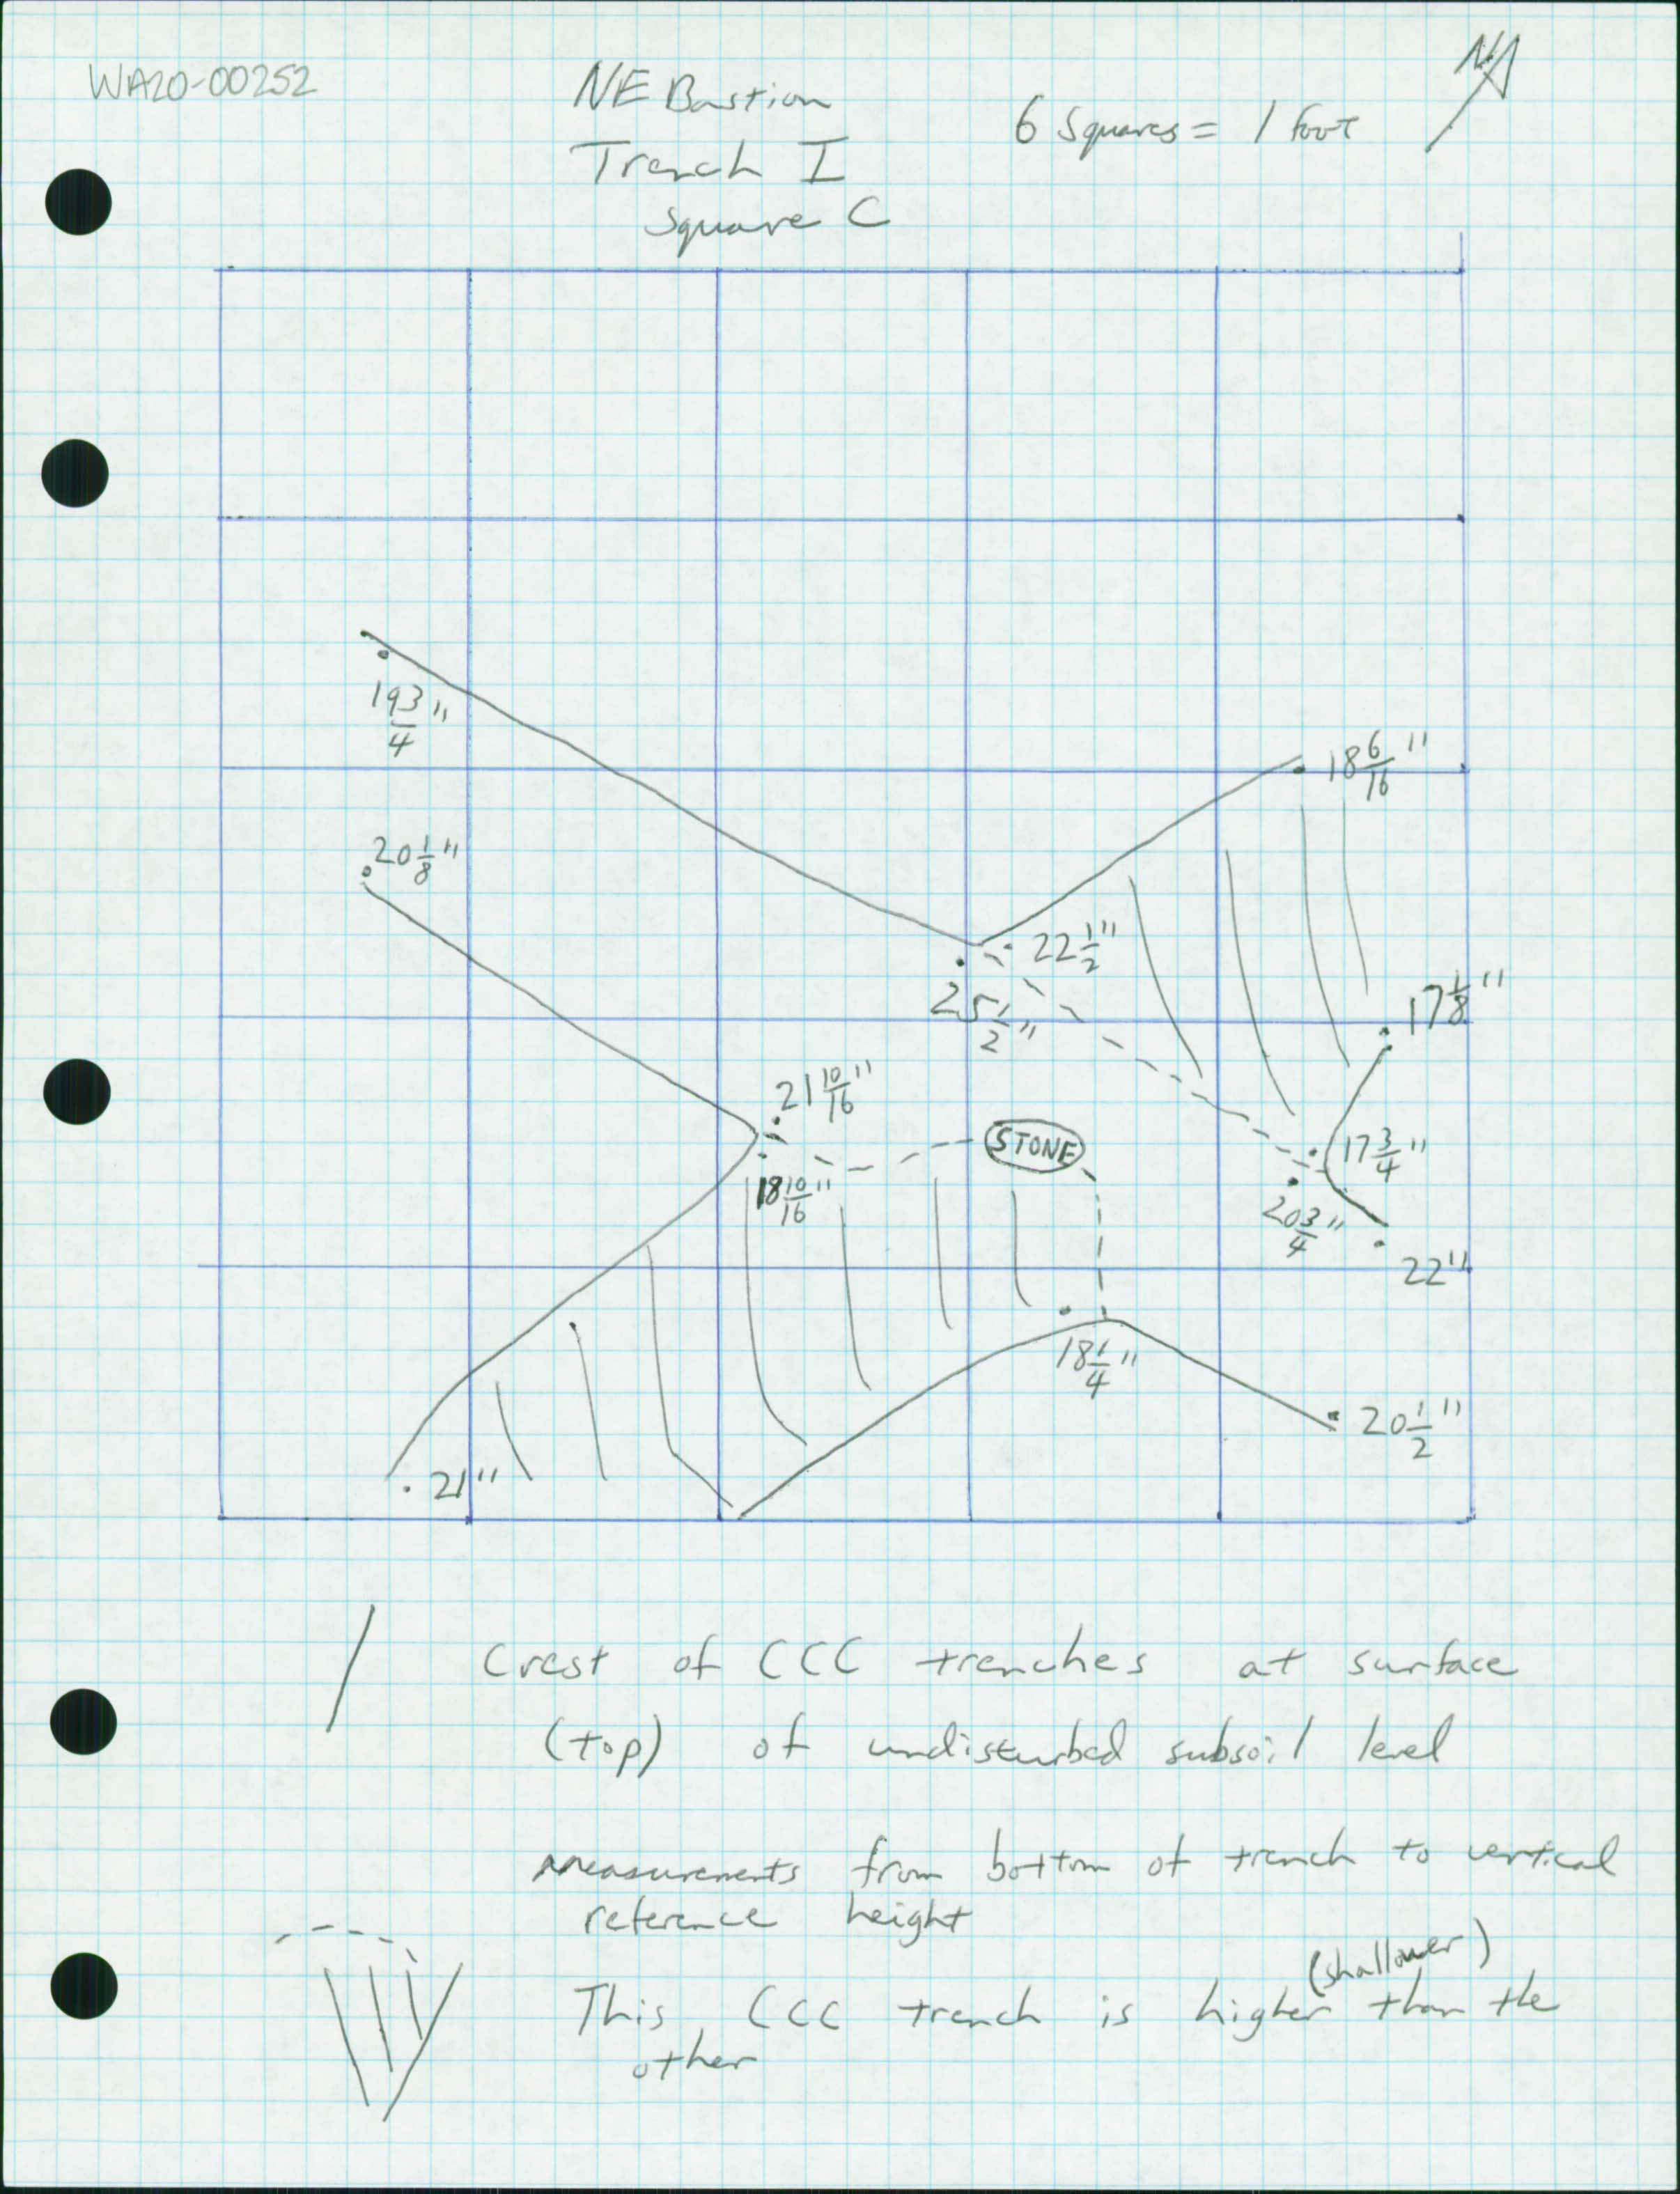 WA20-00252
NE Bastion
Trench I
Square C
6 Squares = 1 foot
N
19 3/4"
20 1/8"
18 6/16"
22 1/2"
25 1/2"
17 1/8"
21 10/16"
STONE
17 3/4"
18 10/16"
20 3/4"
22"
18 1/4"
20 1/2"
21"
Crest of CCC trenches at surface
(top) of undisturbed subsoil level
measurements from bottom of trench to vertical
reference height
(shallower)
This CCC trench is higher than the
other